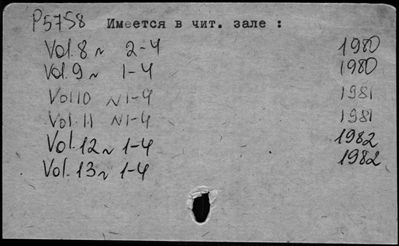 P5758 Имеется в чит. зале :
Vol.8 N 2-4 1980
Vol.9 N 1-4 1980
Vol 10 N 1-4 1981
Vol. 11 N 1-4 1981
Vol. 12 N 1-4 1982
Vol. 13 N 1-4 1982